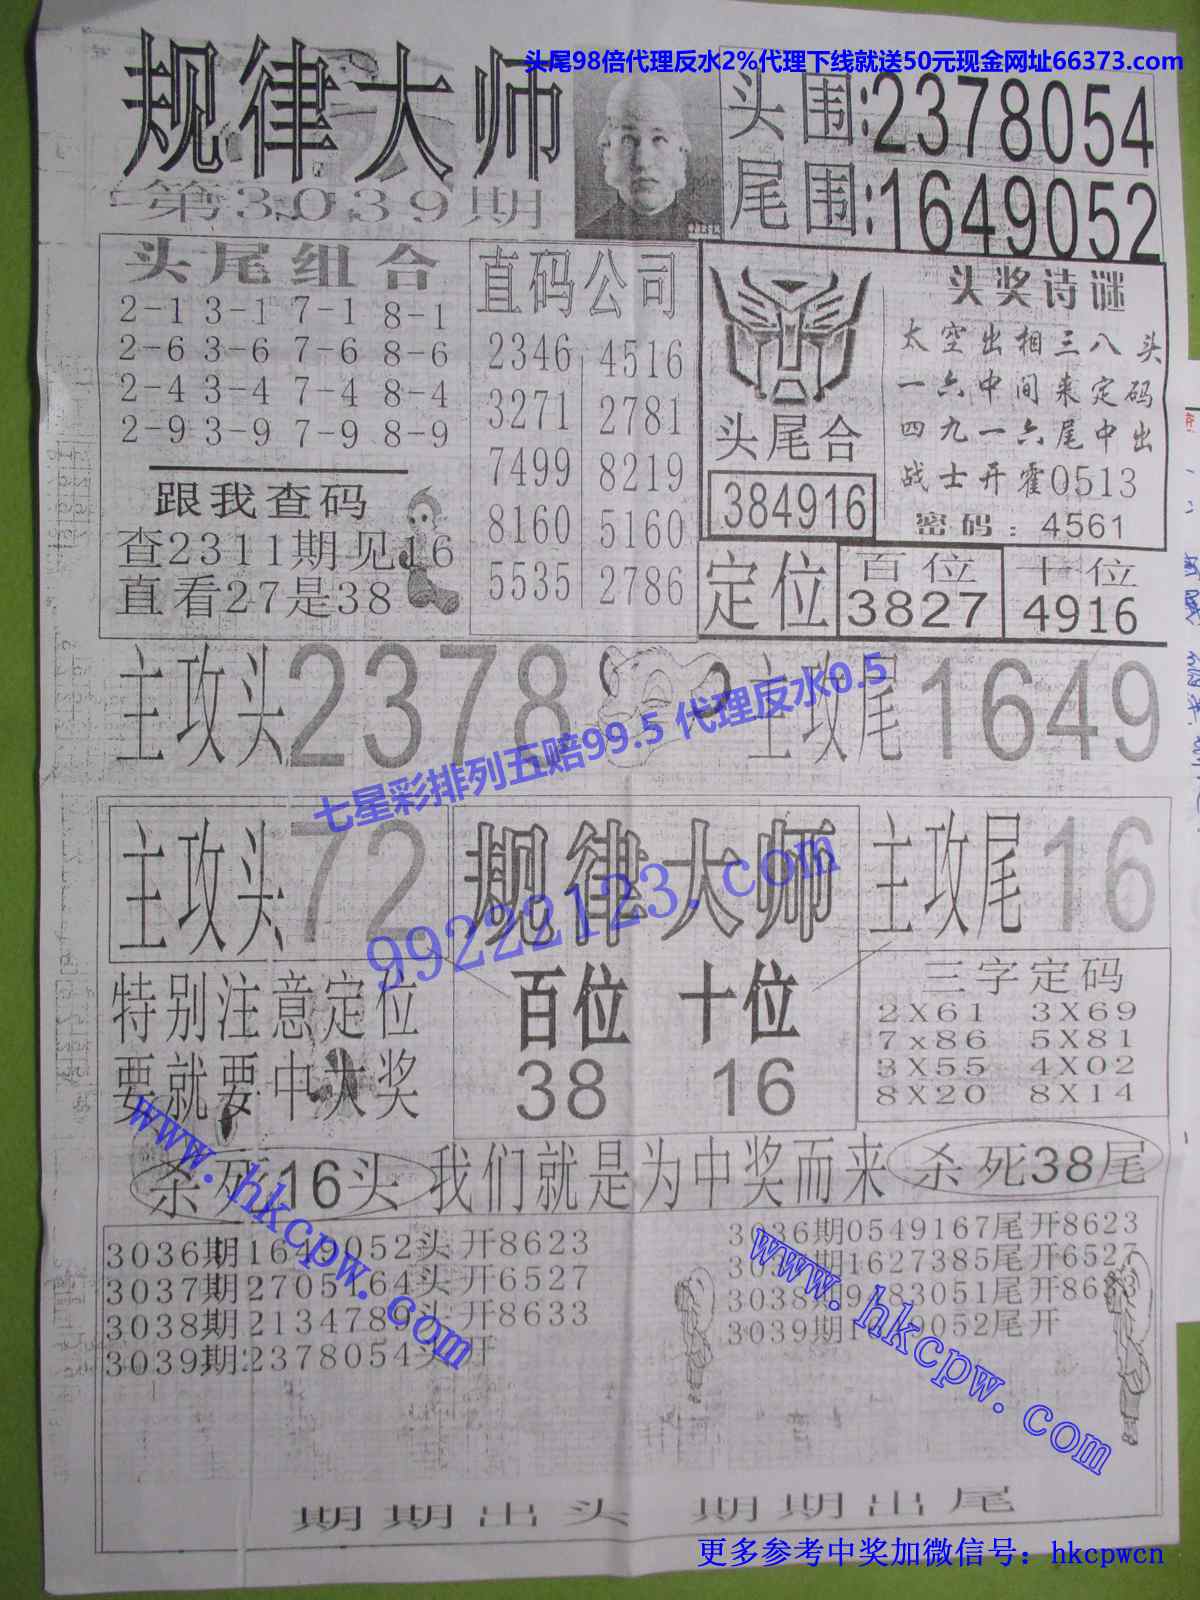 头尾98倍代理反水2%代理下线就送50元现金网址66373.com
规律大师
第3039期
头围:2378054
尾围:1649052
头尾组合
2-1 3-1 7-1 8-1
2-6 3-6 7-6 8-6
2-4 3-4 7-4 8-4
2-9 3-9 7-9 8-9
跟我查码
查2311期见16
直看27是38
直码公司
2346 4516
3271 2781
7499 8219
8160 5160
5535 2786
头尾合
384916
头奖诗谜
太空出相三八头
一六中间来定码
四九一六尾中出
战士开霍0513
密码:4561
定位
百位
3827
十位
4916
主攻头2378
主攻尾1649
七星彩排列五赔99.5 代理反水0.5
99222123.com
主攻头72
规律大师
主攻尾16
特别注意定位
要就要中大奖
百位 十位
38 16
三字定码
2X61 3X69
7x86 5X81
3X55 4X02
8X20 8X14
杀死16头
我们就是为中奖而来
杀死38尾
3036期1649052头开8623
3037期2705164头开6527
3038期2134789头开8633
3039期2378054头开
3036期0549167尾开8623
1627385尾开6527
3038期9 83051尾开8633
3039期1 9052尾开
www.hkcpw.com
www.hkcpw.com
期期出头 期期出尾
更多参考中奖加微信号：hkcpwcn